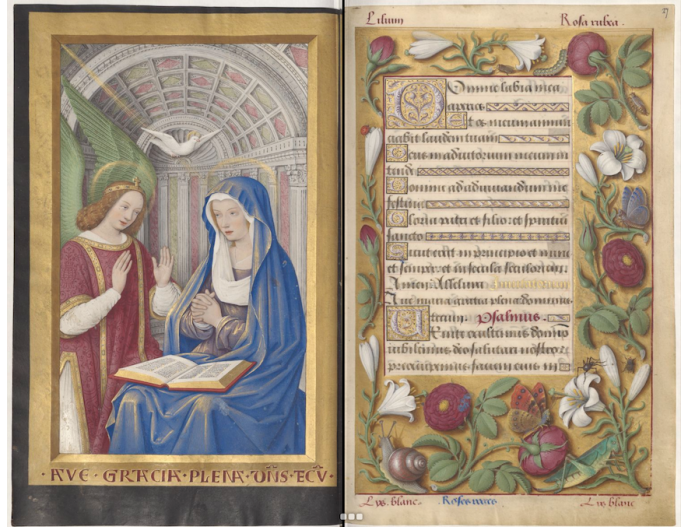 · AVE · GRACIA · PLENA · DÑS · TECṼ ·
Lilium
Rosa rubea.
Domine labia mea
aperies
Et os meum annun
ciabit laudem tuam
Deus in adiutorium meum in
tende
Domine ad adiuvandum me
festina
Gloria patri et filio: et spiritui
sancto
Sicut erat in principio et nunc
et semper: et in secula seculorum.
Amen. Alleluia.
Ave maria gratia plena dominus
tecum. Psalmus.
Venite exultemus domino
iubilemus deo salutari nostro:
preoccupemus faciem eius in
Lys blanc.
Roses
Lys blanc